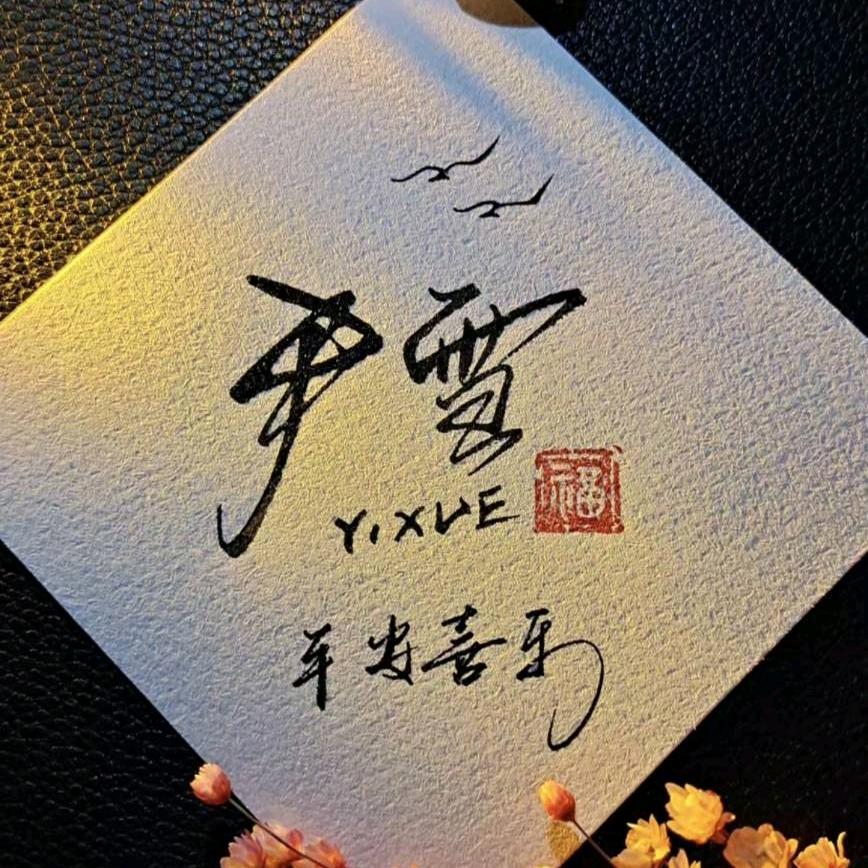 尹雪
YIXUE 福
平安喜乐